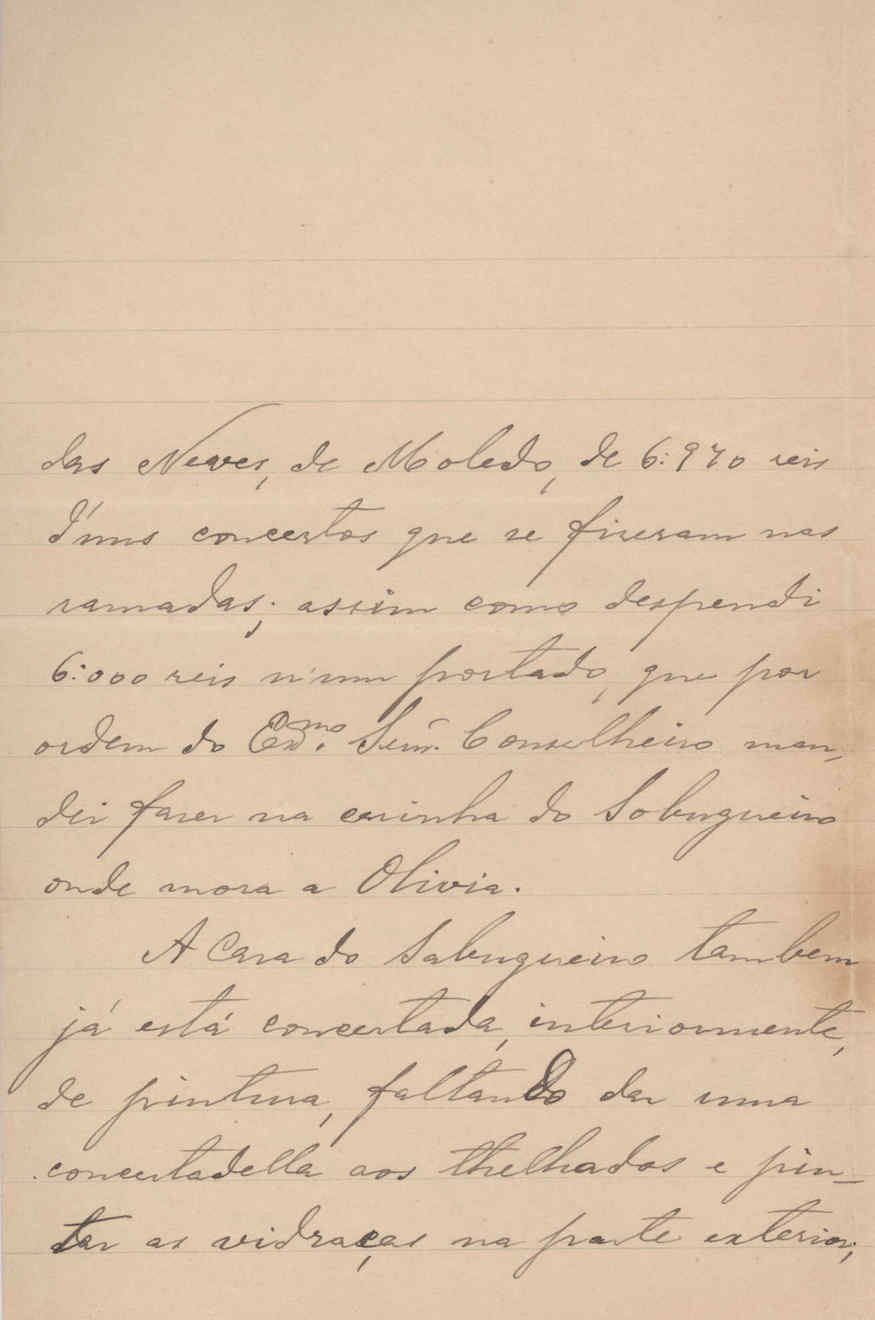 das Neves, de Moledo, de 6:970 reis
d'uns concertos que se fizeram nas
ramadas; assim como despendi
6:000 reis n'um portado, que por
ordem do Exmo. Senr. Conselheiro man-
dei fazer na casinha do Sobugueiro
onde mora a Olivia.
A Casa do Sabugueiro tambem
já está concertada, interiormente,
de pintura, faltando dar uma
concertadella aos thelhados e pin-
tar as vidraças na parte exterior;